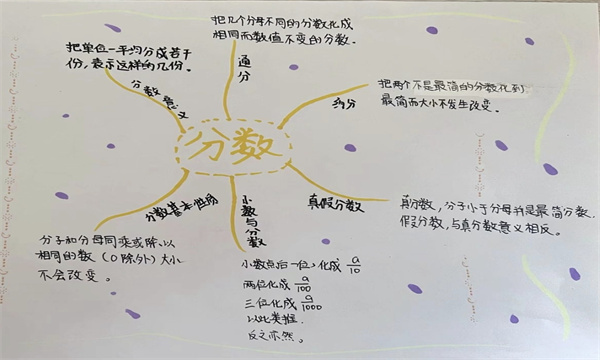 把几个分母不同的分数化成
相同而数值不变的分数.
通分
把单位一平均分成若干
份,表示这样的几份。
分数意义
把两个不是最简的分数化到
最简而大小不发生改变。
约分
分数
真假分数
真分数,分子小于分母并是最简分数.
假分数,与真分数意义相反。
分数基本性质
分子和分母同乘或除以
相同的数(0除外)大小
不会改变。
小数与分数
小数点后一位,化成 a/10
两位化成 a/100
三位化成 a/1000
以此类推.
反之亦然。